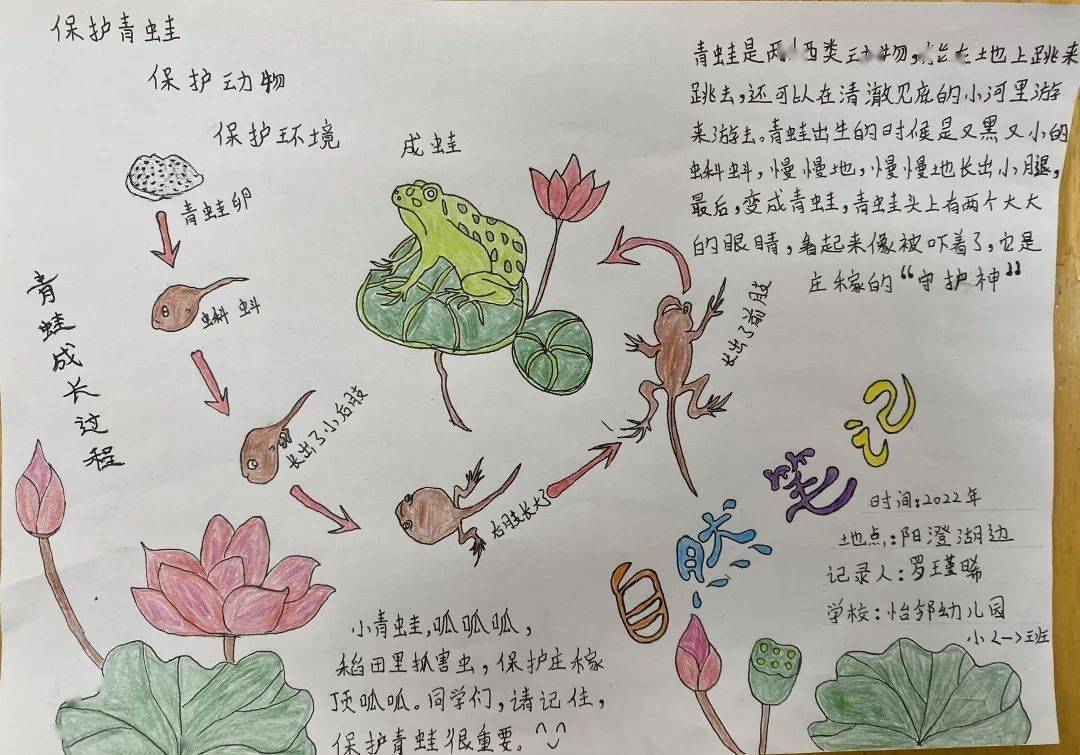 保护青蛙
保护动物
保护环境
青蛙卵
蝌蚪
长出了小后肢
后肢长大了
长出了前肢
成蛙
青蛙成长过程
青蛙是两栖类动物,能在地上跳来
跳去,还可以在清澈见底的小河里游
来游去。青蛙出生的时候是又黑又小的
蝌蚪,慢慢地,慢慢地长出小腿,
最后,变成青蛙,青蛙头上有两个大大
的眼睛,看起来像被吓着了,它是
庄稼的“守护神”
自然笔记
时间:2022年
地点:阳澄湖边
记录人:罗王瑾晞
学校:怡邻幼儿园
小<一>班
小青蛙,呱呱呱,
稻田里抓害虫,保护庄稼
顶呱呱。同学们,请记住,
保护青蛙很重要。